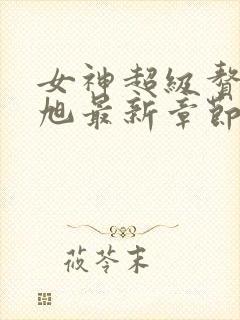 女神超級贅
旭最新章節
莜苓末